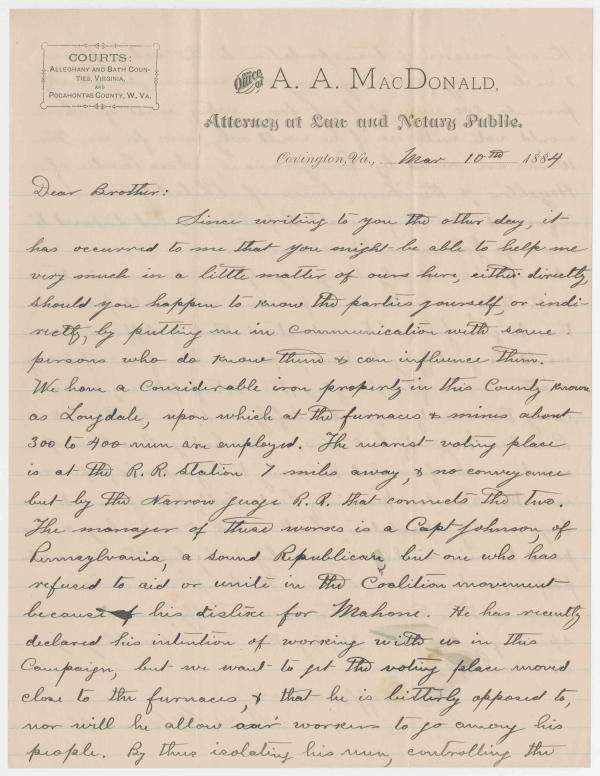 COURTS:
ALLEGHANY AND BATH COUN-
TIES, VIRGINIA,
AND
POCAHONTAS COUNTY, W. VA.
Office of A. A. MACDONALD,
Attorney at Law and Notary Public.
Covington, Va., Mar 10TH 1884
Dear Brother:
Since writing to you the other day, it
has occurred to me that you might be able to help me
very much in a little matter of ours here, either directly,
should you happen to know the parties yourself, or indi-
rectly, by putting me in communication with some
persons who do know them & can influence them.
We have a considerable iron property in this County known
as Longdale, upon which at the furnaces & mines about
300 to 400 men are employed. The nearest voting place
is at the R.R. Station 7 miles away, & no conveyance
but by the Narrow guage R.R. that connects the two.
The manager of these works is a Capt Johnson, of
Pennsylvania, a sound Republican, but one who has
refused to aid or unite in the Coalition movement
because of his dislike for Mahone. He has recently
declared his intention of working with us in this
Campaign, but we want to get the voting place moved
close to the furnaces, & that he is bitterly opposed to,
nor will he allow our workers to go among his
people. By thus isolating his men, controlling the